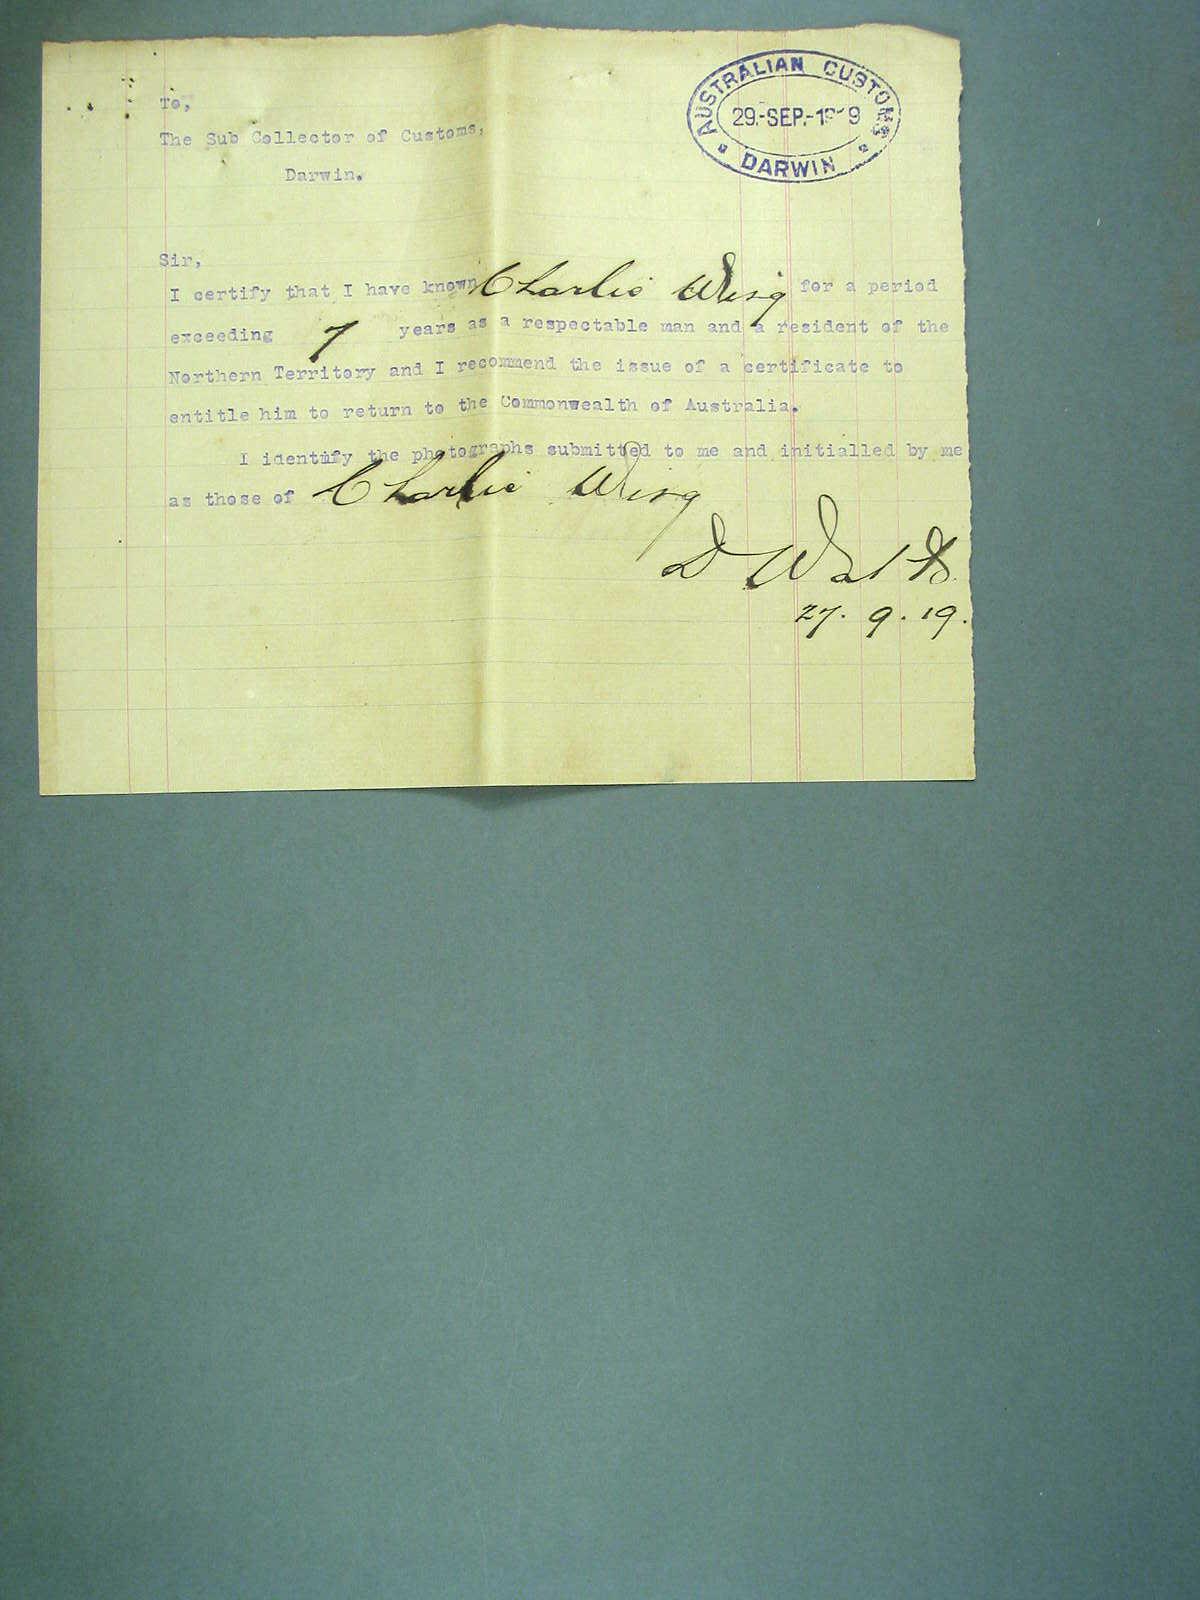 AUSTRALIAN CUSTOMS
29.-SEP.-1919
DARWIN
To,
The Sub Collector of Customs,
Darwin.
Sir,
I certify that I have known Charlie Wing for a period
exceeding 7 years as a respectable man and a resident of the
Northern Territory and I recommend the issue of a certificate to
entitle him to return to the Commonwealth of Australia.
I identify the photographs submitted to me and initialled by me
as those of Charlie Wing
D Watts
27. 9. 19.